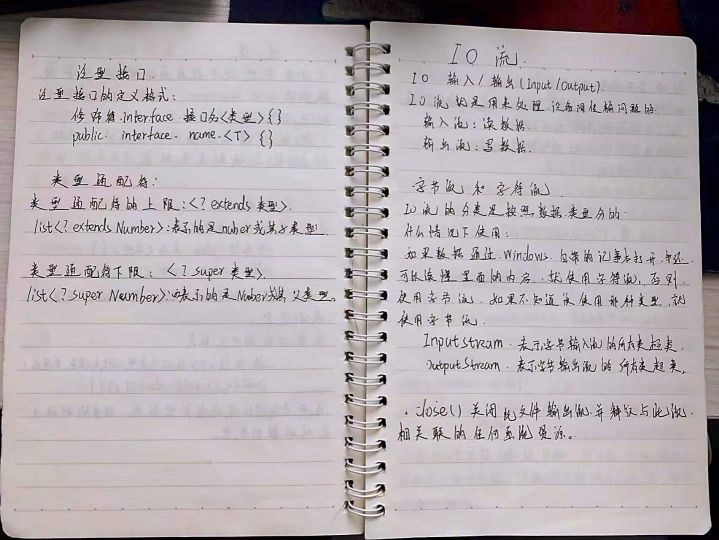 泛型接口.
泛型接口的定义格式:
修饰符.interface 接口名<类型>{}
public. interface. name.<T> {}
类型通配符:
类型通配符的上限:<? extends 类型>.
list<? extends Number>:表示的是nuber或其子类型
类型通配符下限: <? super 类型>
list<? super Number>:表示的是Nuber或其父类型。
IO 流.
IO 输入/输出(Input/Output).
IO流就是用来处理设备间传输问题的
输入流:读数据.
输出流:写数据.
字节流 和 字符流
IO流的分类是按照数据类型分的.
什么情况下使用:
如果数据通过.Windows.自带的记事本打开,
可以读懂里面的内容.就使用字符流,否则
使用字节流.如果不知道该使用那种类型,就
使用字节流.
Inputstream.表示字节输入流的所有类超类.
OutputStream.表示字节输出流的所有类超类。
.close() 关闭此文件输出流并释放与此流.
相关联的任何系统资源。